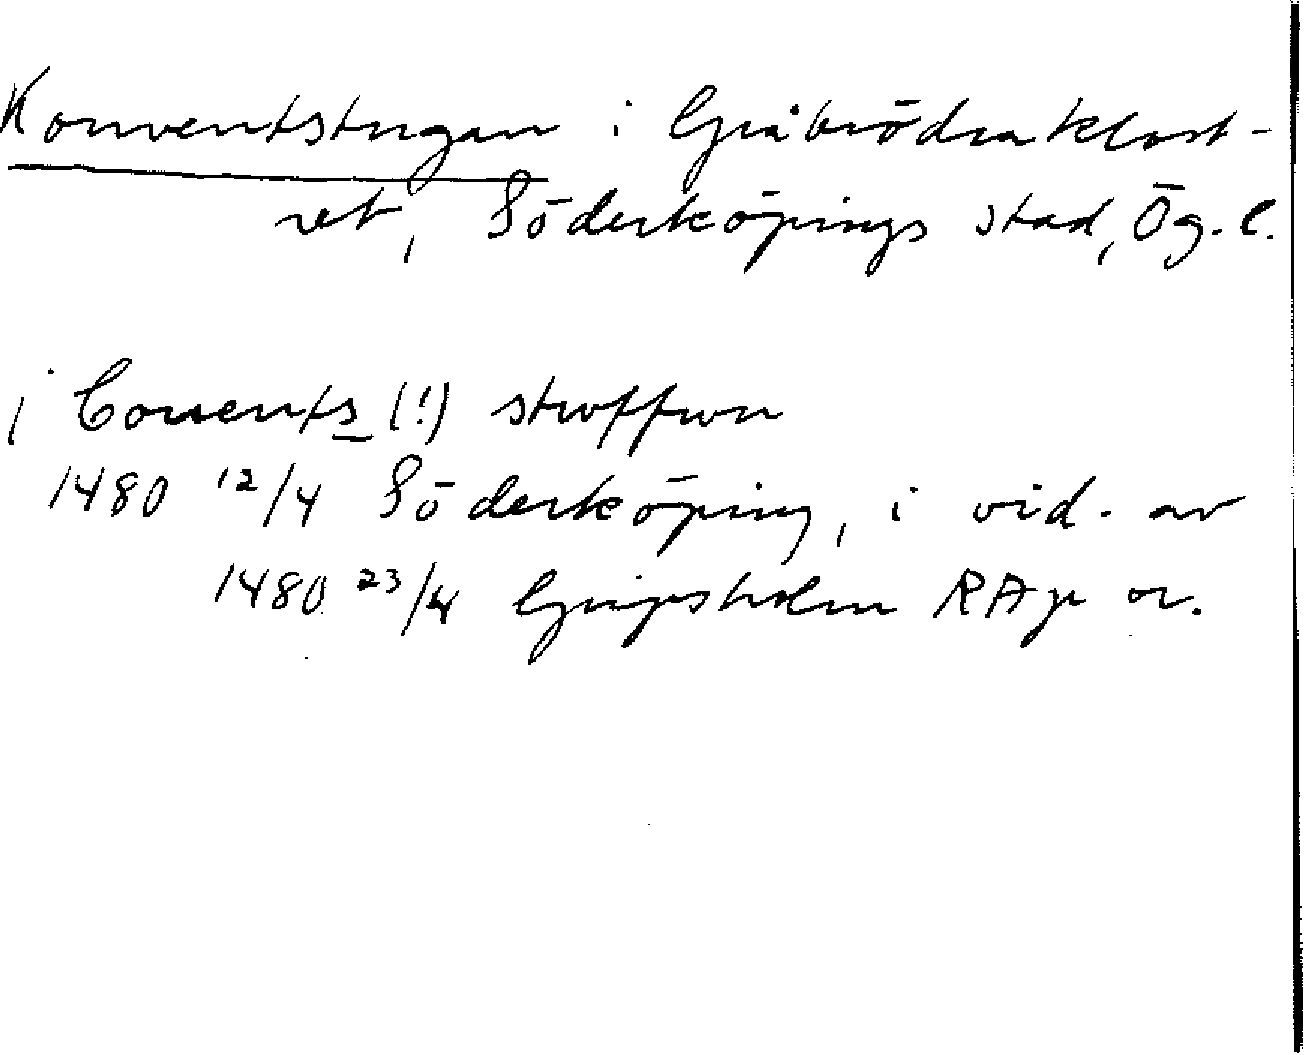 Konventstugan i Gråbrödraklost-
ret, Söderköpings stad, Ög. l.
i Conents (!) stuffwn
1480 12/4 Söderköping, i vid. av
1480 23/4 Gripsholm RAp or.